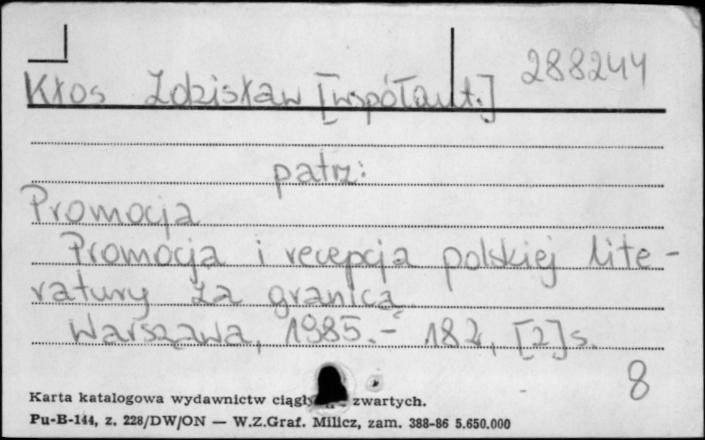 288244
Kłos Zdzisław [współaut.]
patrz:
Promocja
Promocja i recepcja polskiej lite-
ratury za granicą
Warszawa, 1985. - 182, [2] s.
8
Karta katalogowa wydawnictw zwartych.
Pu-B-144, z. 228/DW/ON — W.Z.Graf. Milicz, zam. 388-86 5.650.000